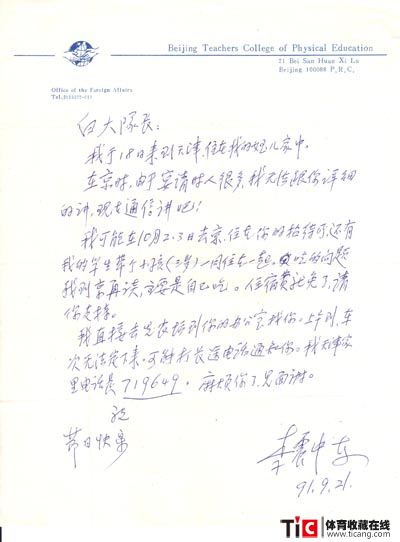 Beijing Teachers College of Physical Education
21 Bei San Huan Xi Lu
Beijing 100088 P.R.C.
Office of the Foreign Affairs
白大队长:
我于18日来到天津,住在我的姐儿家中。
在京时,由于宴请的人很多,我无法跟你详细
的讲,现在通信讲吧!
我可能在10月2.3日去京,住在你的招待所,还有
我的学生带个小孩(三岁)一同住在一起,吃的问题
我到京再谈,主要是自己吃。住宿费就免了,请
你支持。
我直接去先农坛到你的办公室找你。上午到,车
次无法定下来,可能打长途电话通知你。我天津家
里电话是719649。麻烦你了,见面谢。
祝
节日快乐
李震中
91.9.21.
TiC 体育收藏在线
www.ticang.com